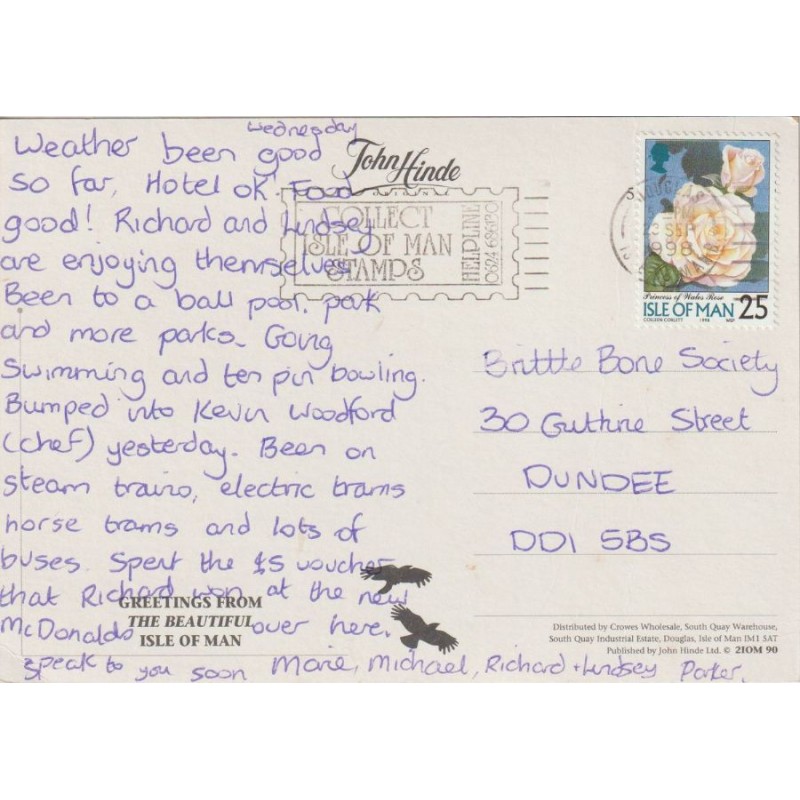 Wednesday
Weather been good
so far, Hotel ok. Food
good! Richard and Lindsey
are enjoying themselves
Been to a ball pool, park
and more parks. Going
Swimming and ten pin bowling.
Bumped into Kevin Woodford
(chef) yesterday. Been on
steam trains, electric trams
horse trams and lots of
buses. Spent the £5 voucher
that Richard won at the new
McDonalds over here.
Speak to you soon Marie, Michael, Richard + Lindsey Parker.
John Hinde
COLLECT
ISLE OF MAN
STAMPS
HELPLINE
0624 686130
DOUGLAS
SEP
1998
Princess of Wales Rose
ISLE OF MAN 25
COLLEEN CORLETT 1998
Brittle Bone Society
30 Guthrie Street
DUNDEE
DD1 5BS
GREETINGS FROM
THE BEAUTIFUL
ISLE OF MAN
Distributed by Crowes Wholesale, South Quay Warehouse,
South Quay Industrial Estate, Douglas, Isle of Man IM1 5AT
Published by John Hinde Ltd. © 2IOM 90